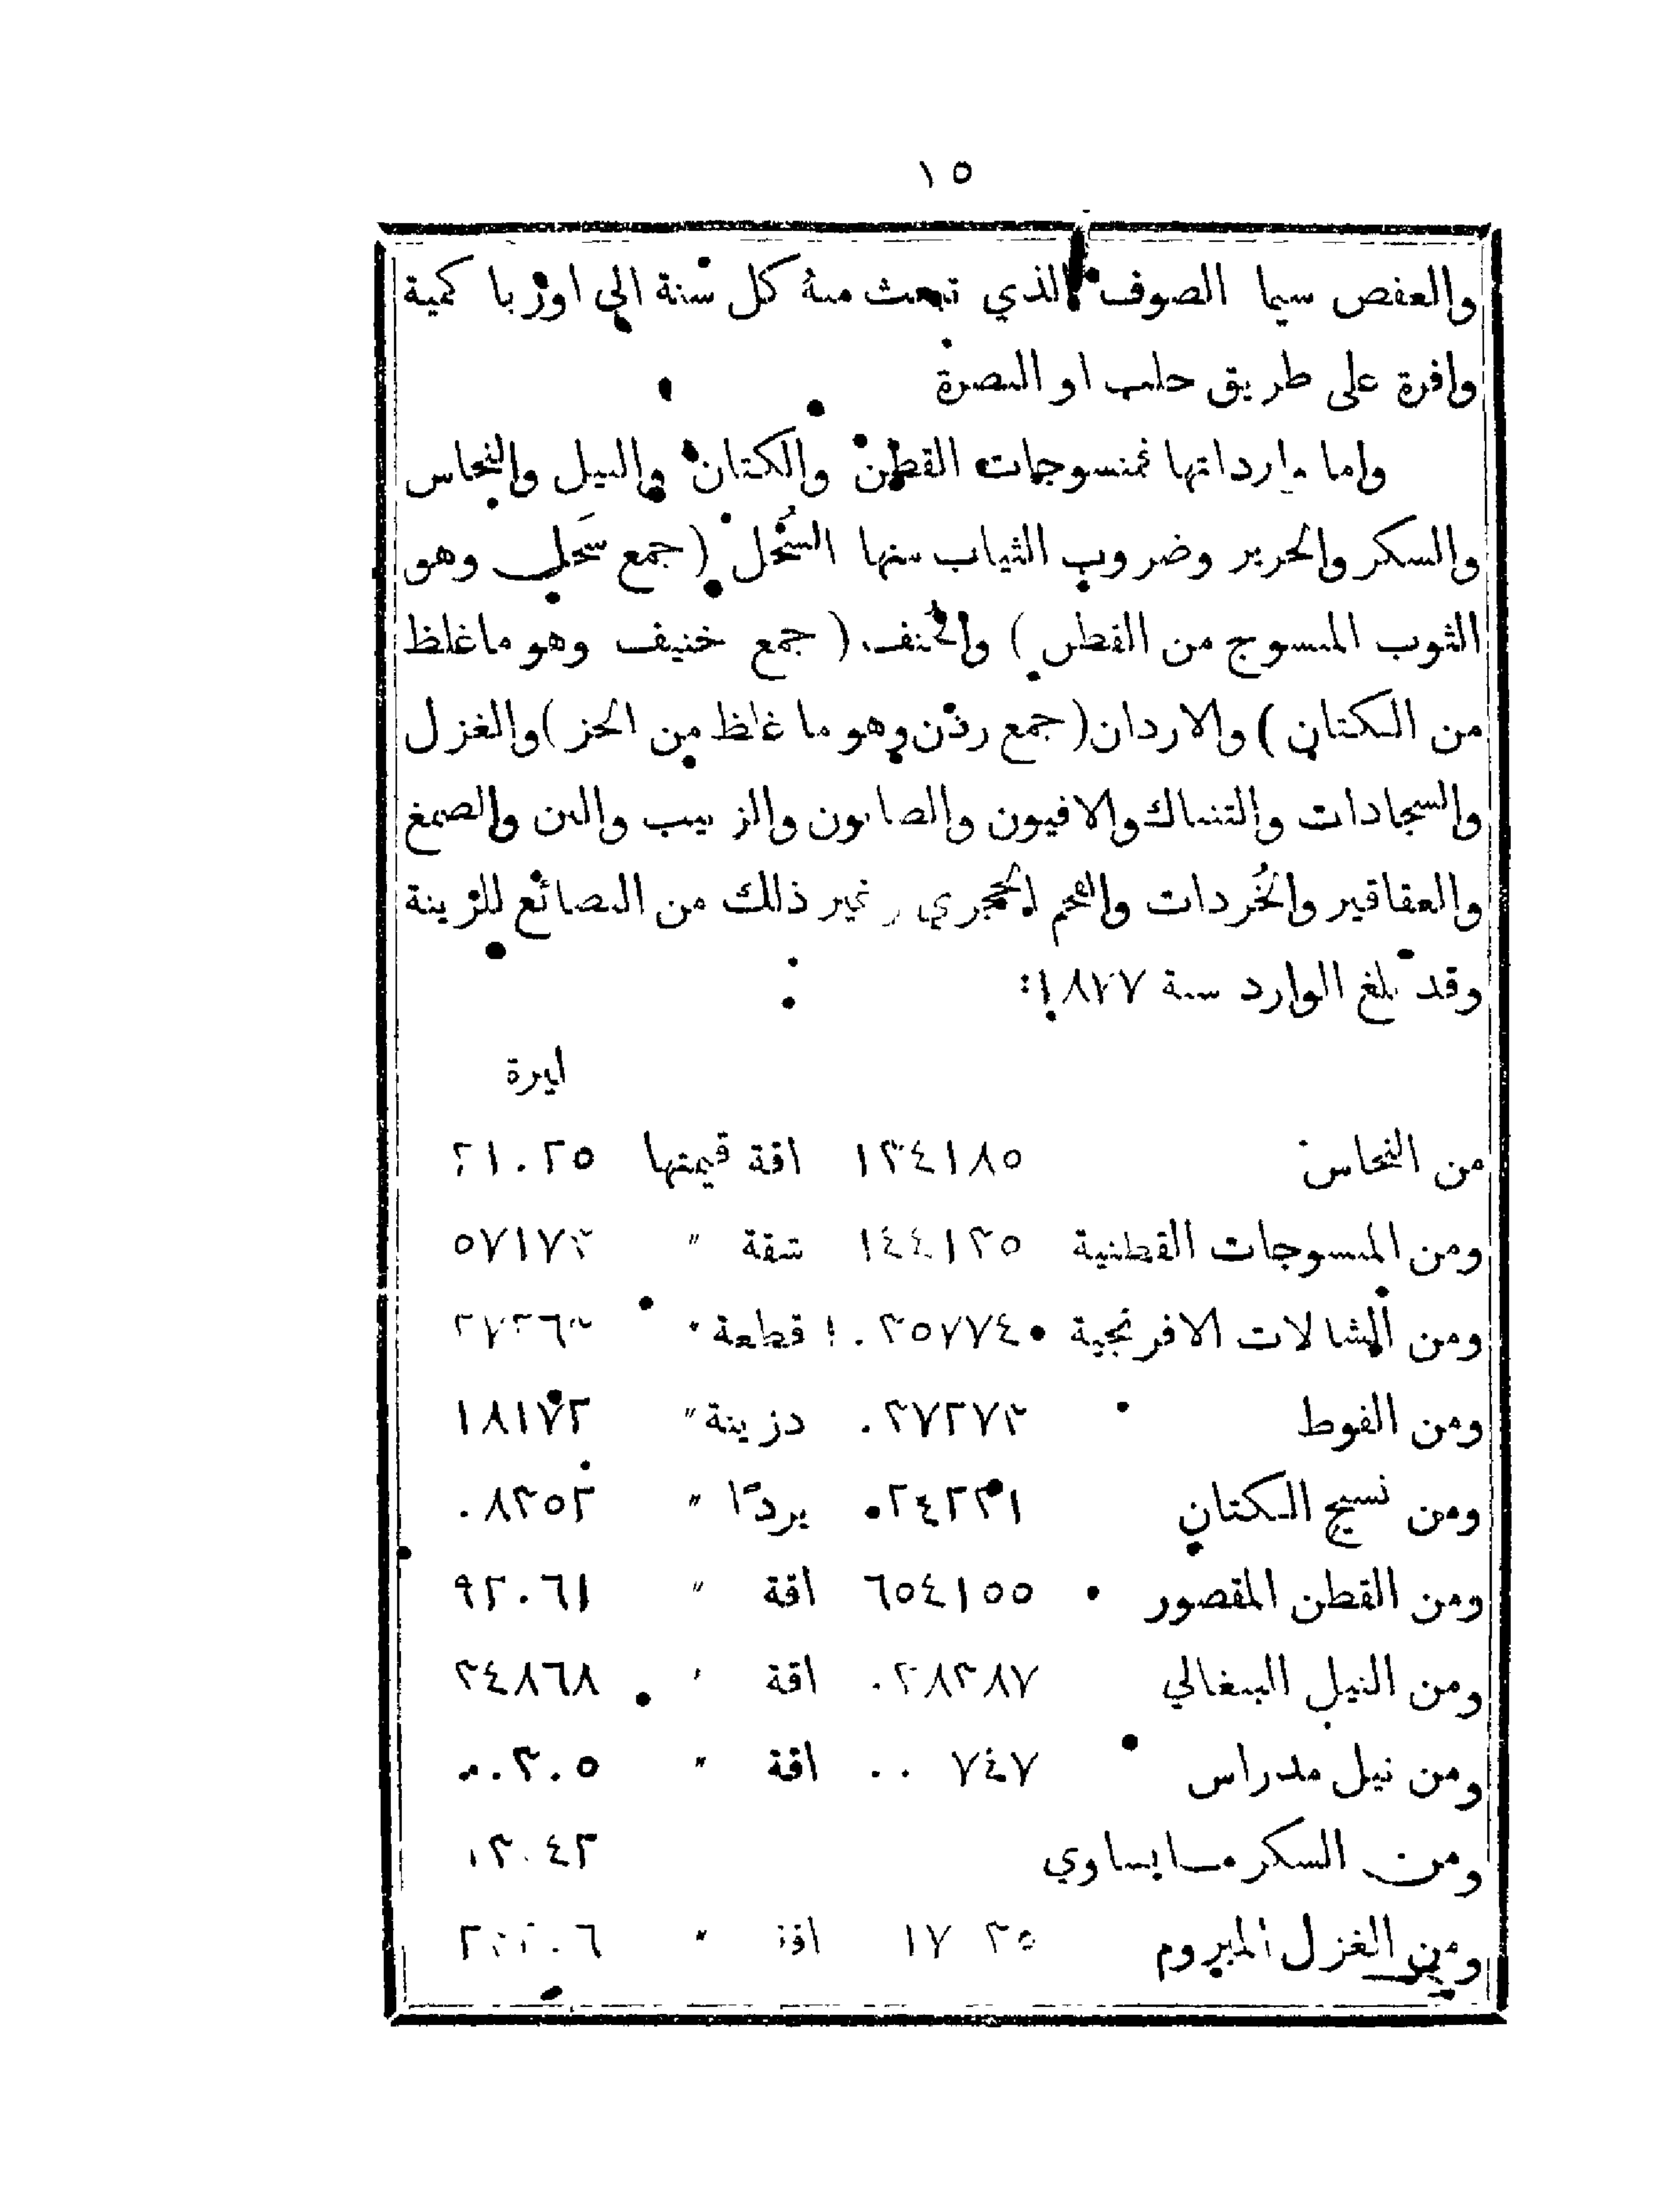 ١٥
والعفص سيما الصوف الذي تبعث منهُ كل سنة الى اوربا كمية
وافرة على طريق حلب او البصرة
واما وارداتها فمنسوجات القطن والكتان والنيل والنحاس
والسكر والحرير وضروب الثياب منها السُحُل (جمع سَحل وهو
الثوب المنسوج من القطن) والخُنف (جمع خنيف وهو ما غلظ
من الكتان) والاردان (جمع ردن وهو ما غلظ من الخز) والغزل
والسجادات والتنباك والافيون والصابون والزبيب والبن والصمغ
والعقاقير والخُردات والفحم الحجري وغير ذلك من البضائع للزينة
وقد بلغ الوارد سنة ١٨٧٧:
ليرة
من النحاس ١٣٤١٨٥ اقة قيمتها
ومن المنسوجات القطنية ١٤٤١٣٥ شقة " ٥٧١٧٣
ومن الشالات الافرنجية قطعة "
ومن الفوط ٠٢٧٢٧٣ دزينة " ١٨١٧٣
ومن نسيج الكتان يردًا "
ومن القطن المقصور ٦٥٤١٥٥ اقة " ٩٢٠٦١
ومن النيل البنغالي ٠٢٨٣٨٧ اقة " ٣٤٨٦٨
ومن نيل مدراس ٠٠ ٧٤٧ اقة " ٠٠٣٠٥
ومن السكر
ومن الغزل المبروم اقة "